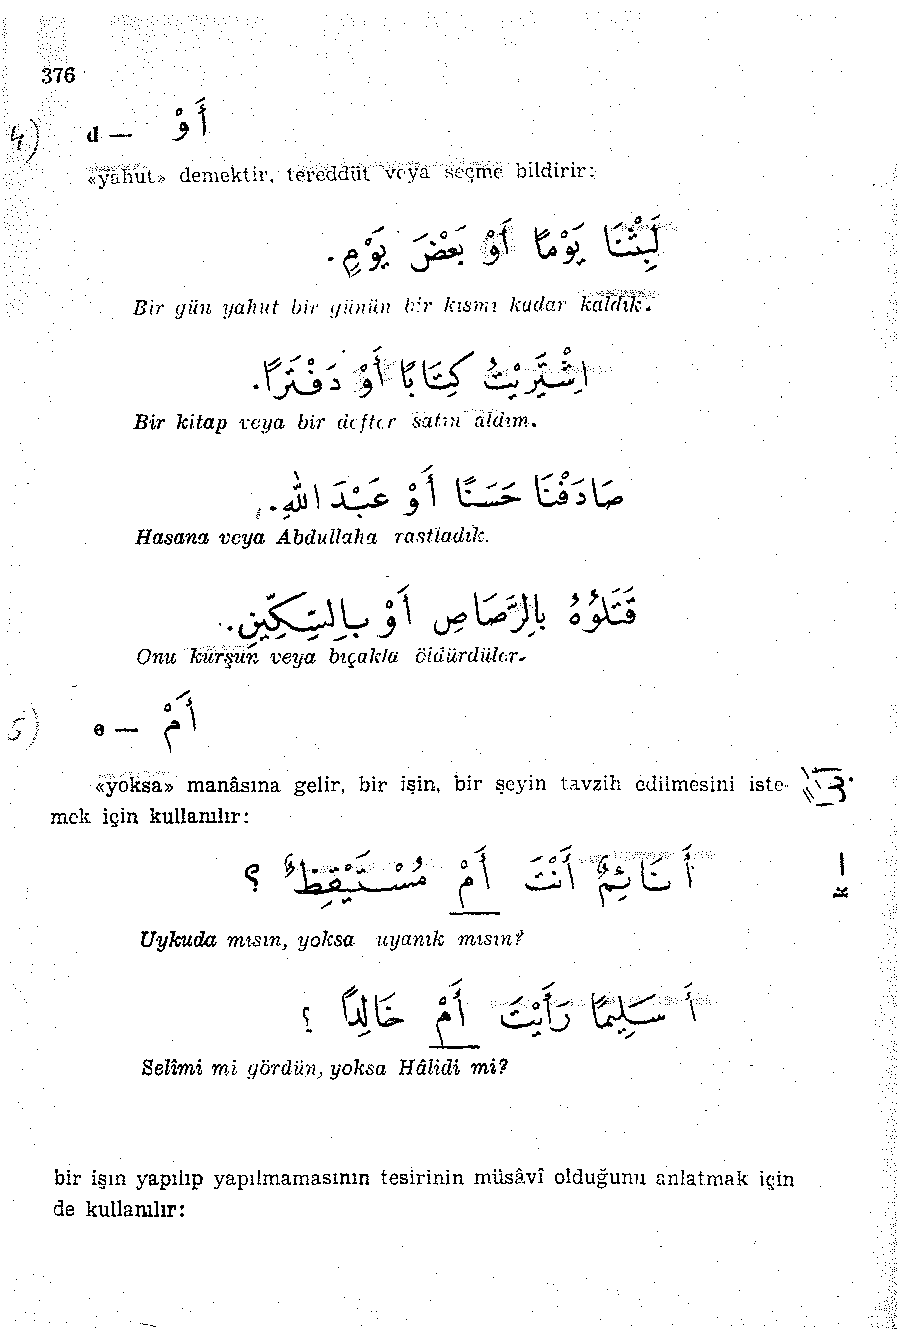 376
4) d — أَوْ
«yahut» demektir, tereddüt veya seçme bildirir:
لَبِثْنَا يَوْمًا أَوْ بَعْضَ يَوْمٍ.
Bir gün yahut bir günün bir kısmı kadar kaldık.
اِشْتَرَيْتُ كِتَابًا أَوْ دَفْتَرًا.
Bir kitap veya bir defter satın aldım.
صَادَفْنَا حَسَنًا أَوْ عَبْدَ اللهِ.
Hasana veya Abdullaha rastladık.
قَتَلُوْهُ بِالرَّصَاصِ أَوْ بِالسِّكِّينِ.
Onu kurşun veya bıçakla öldürdüler.
5) e — أَمْ
«yoksa» manâsına gelir, bir işin, bir şeyin tavzih edilmesini iste-
mek için kullanılır:
أَ نَائِمٌ أَنْتَ أَمْ مُسْتَيْقِظٌ ؟
Uykuda mısın, yoksa uyanık mısın?
أَ سَلِيمًا رَأَيْتَ أَمْ خَالِدًا ؟
Selîmi mi gördün, yoksa Hâlidi mi?
bir işın yapılıp yapılmamasının tesirinin müsâvî olduğunu anlatmak için
de kullanılır: